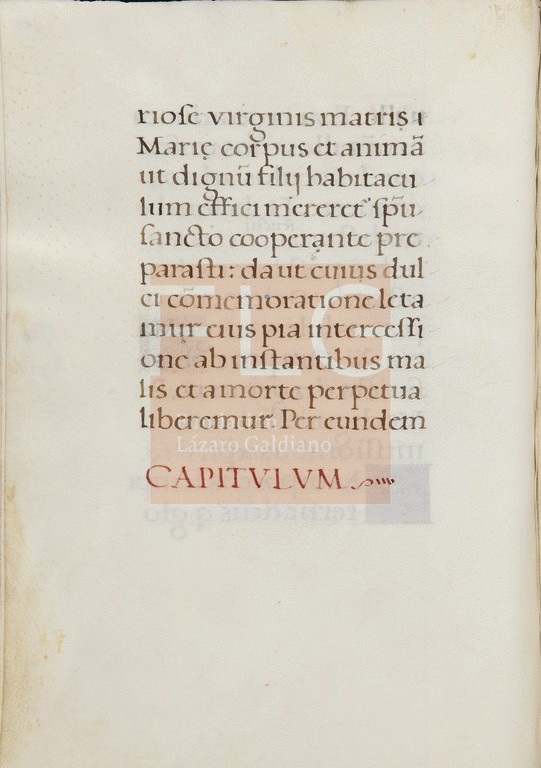 rioſe virginis matris ⁊
Marię corpus et animā
ut dignū filij habitacu
lum effici mereret᷑ ſpū
ſancto cooperante pre
parasti: da ut cuius dul
ci cōmemoratione leta
mur eius pia interceſſi
one ab inſtantibus ma
lis et a morte perpetua
liberemur. Per eundem̄
Lázaro Galdiano
CAPITVLVM